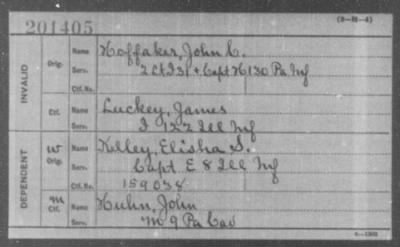 (3-H-4)
201405
INVALID
Orig.
Name Hoffaker, John C.
Serv. 2 Lt I 31 & Capt H 130 Pa Inf
Ctf. No.
Ctf.
Name Luckey, James
Serv. I 122 Ill Inf
DEPENDENT
W
Orig.
Name Kelley, Elisha S.
Serv. Capt. E 8 Ill Inf
Ctf. No. 159038
m
Ctf.
Name Huhn, John
Serv. M 9 Pa Cav